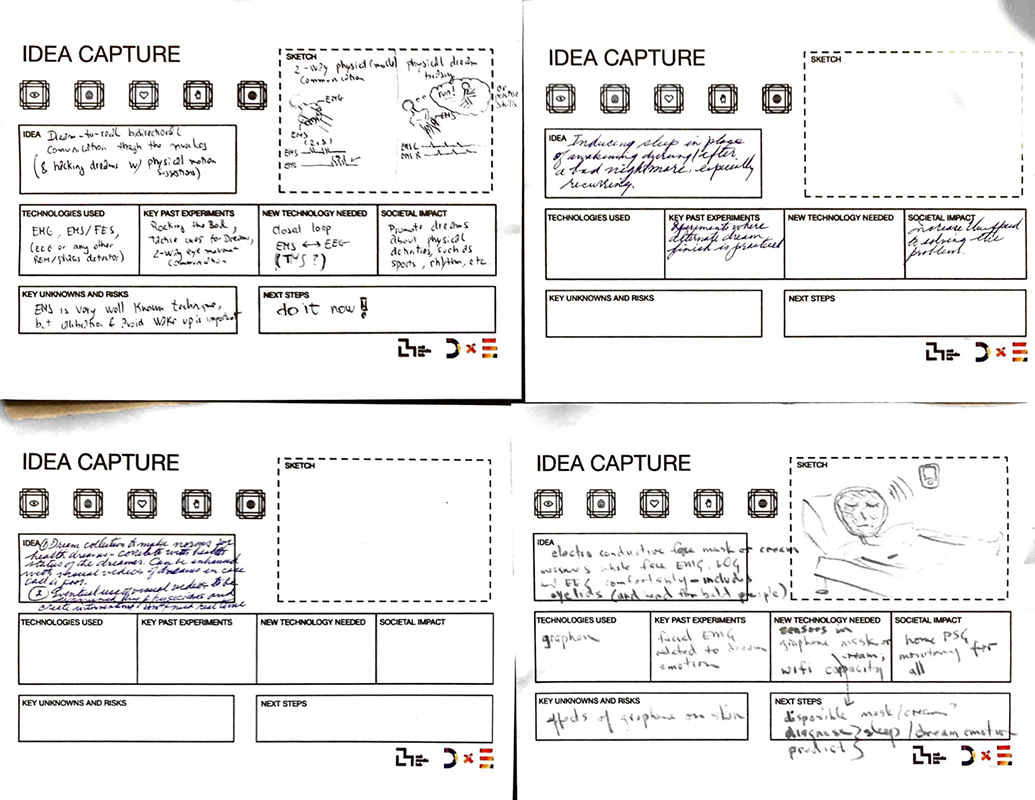 IDEA CAPTURE
SKETCH
2-way physical (muscle)
Communication
physical dream
hacking
EMG
EMS
run!
EMS
or
skills
EMS L
EMS R
IDEA Dream-to-real bidirectional
comunication through the muscles
(& hacking dreams w/ physical motion
TECHNOLOGIES USED
EMG, EMS/FES,
(EEG or any other
REM/stages detector)
KEY PAST EXPERIMENTS
Rocking the Bed,
Tactile cues for Dreams,
2-way eye movement
Communication
NEW TECHNOLOGY NEEDED
Closed loop
EMS ↔ EEG
(TMS?)
SOCIETAL IMPACT
Promote dreams
about physical
activities, such as
sports, rhythm, etc.
KEY UNKNOWNS AND RISKS
EMS is very well known technique,
but calibration & avoid wake up is important
NEXT STEPS
do it now!
IDEA CAPTURE
SKETCH
IDEA Inducing sleep in place
of awakening during/after
a bad nightmare, especially
recurring.
TECHNOLOGIES USED
KEY PAST EXPERIMENTS
Experiments where
alternate dream
finish is practiced
NEW TECHNOLOGY NEEDED
SOCIETAL IMPACT
increase the speed
to solving the
problem.
KEY UNKNOWNS AND RISKS
NEXT STEPS
IDEA CAPTURE
SKETCH
IDEA (1) Dream collection to make norms for
health dreams - correlate with health
status of the dreamer. Can be enhanced
with visual videos of dreams in case
(2) Eventual use of visual videos to be
TECHNOLOGIES USED
KEY PAST EXPERIMENTS
NEW TECHNOLOGY NEEDED
SOCIETAL IMPACT
KEY UNKNOWNS AND RISKS
NEXT STEPS
IDEA CAPTURE
SKETCH
IDEA
electro conductive face mask or cream
measures whole face EMG, EOG
and EEG comfortably - includes
eyelids (and head for bald people)
TECHNOLOGIES USED
graphene
KEY PAST EXPERIMENTS
facial EMG
related to dream
emotion
NEW TECHNOLOGY NEEDED
sensors in
graphene mask or
cream,
wifi capacity
SOCIETAL IMPACT
home PSG
monitoring for
all
KEY UNKNOWNS AND RISKS
effects of graphene on skin
NEXT STEPS
disposible mask/cream?
diagnose } sleep/dream emotion
predict }